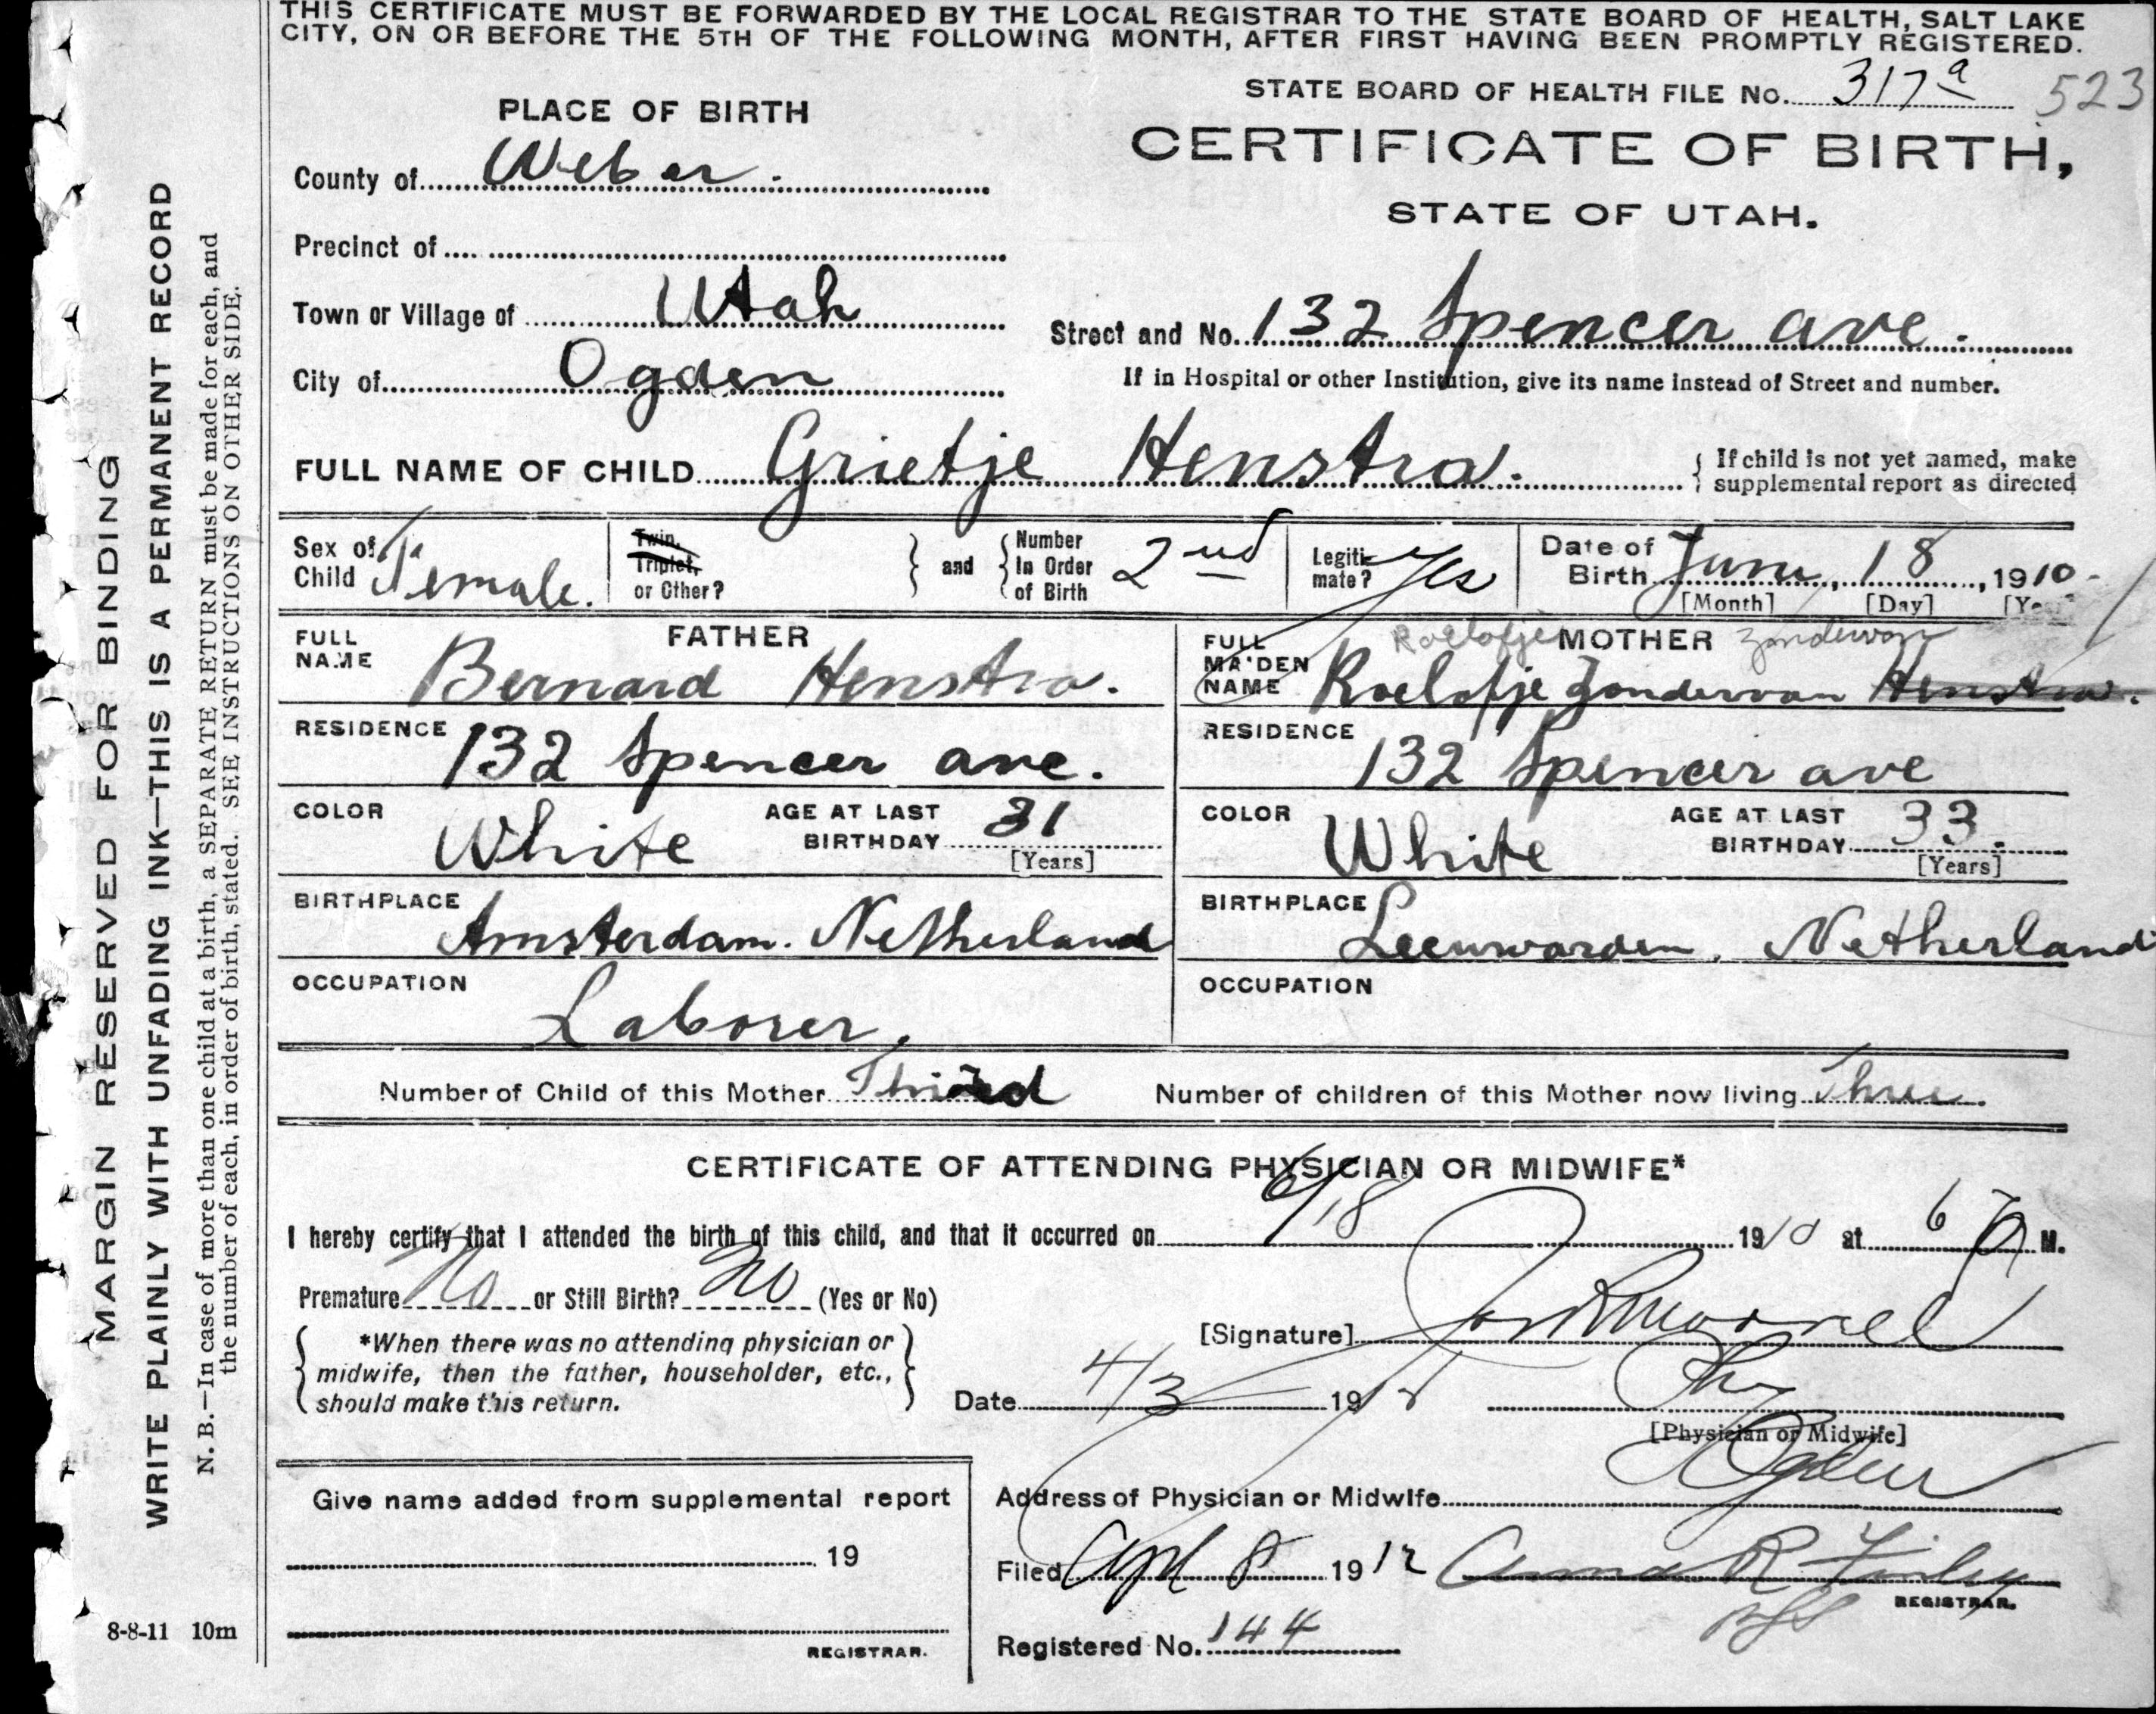 THIS CERTIFICATE MUST BE FORWARDED BY THE LOCAL REGISTRAR TO THE STATE BOARD OF HEALTH, SALT LAKE
CITY, ON OR BEFORE THE 5TH OF THE FOLLOWING MONTH, AFTER FIRST HAVING BEEN PROMPTLY REGISTERED.
STATE BOARD OF HEALTH FILE No. 317a 523
PLACE OF BIRTH
CERTIFICATE OF BIRTH,
STATE OF UTAH.
County of Weber.
Precinct of
Town or Village of Utah
Street and No. 132 Spencer ave.
City of Ogden
If in Hospital or other Institution, give its name instead of Street and number.
FULL NAME OF CHILD Grietje Henstra.
If child is not yet named, make
supplemental report as directed
Sex of Child Female.
Twin, Triplet, or Other?
and
Number In Order of Birth 2nd
Legiti- mate? Yes
Date of Birth June, 18, 1910
[Month] [Day] [Year]
FATHER
FULL NAME Bernard Henstra.
RESIDENCE 132 Spencer ave.
COLOR White
AGE AT LAST BIRTHDAY 31
[Years]
BIRTHPLACE Amsterdam. Netherland
OCCUPATION Laborer.
Roelofje MOTHER Zondervan
FULL MAIDEN NAME Roelofje Zondervan Henstra.
RESIDENCE 132 Spencer ave
COLOR White
AGE AT LAST BIRTHDAY 33.
[Years]
BIRTHPLACE Leeuwarden, Netherland
OCCUPATION
Number of Child of this Mother Third
Number of children of this Mother now living Three.
CERTIFICATE OF ATTENDING PHYSICIAN OR MIDWIFE*
I hereby certify that I attended the birth of this child, and that it occurred on 6/18 1910 at 6 P M.
Premature No or Still Birth? No (Yes or No)
*When there was no attending physician or
midwife, then the father, householder, etc.,
should make this return.
[Signature]
Date 4/3 1912
Phy
[Physician or Midwife]
Address of Physician or Midwife Ogden
Filed Apl 8 1912 Anna R. Finley
REGISTRAR.
Registered No. 144
Give name added from supplemental report
19
REGISTRAR.
8-8-11 10m
MARGIN RESERVED FOR BINDING
WRITE PLAINLY WITH UNFADING INK—THIS IS A PERMANENT RECORD
N. B.—In case of more than one child at a birth, a SEPARATE RETURN must be made for each, and
the number of each, in order of birth, stated. SEE INSTRUCTIONS ON OTHER SIDE.